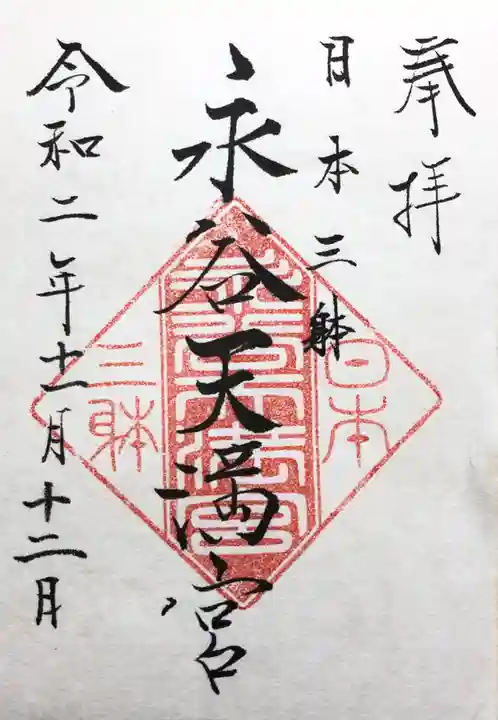 奉拝
日本三躰
永谷天満宮
令和二年十一月十二月
日本
永谷天満宮
三躰